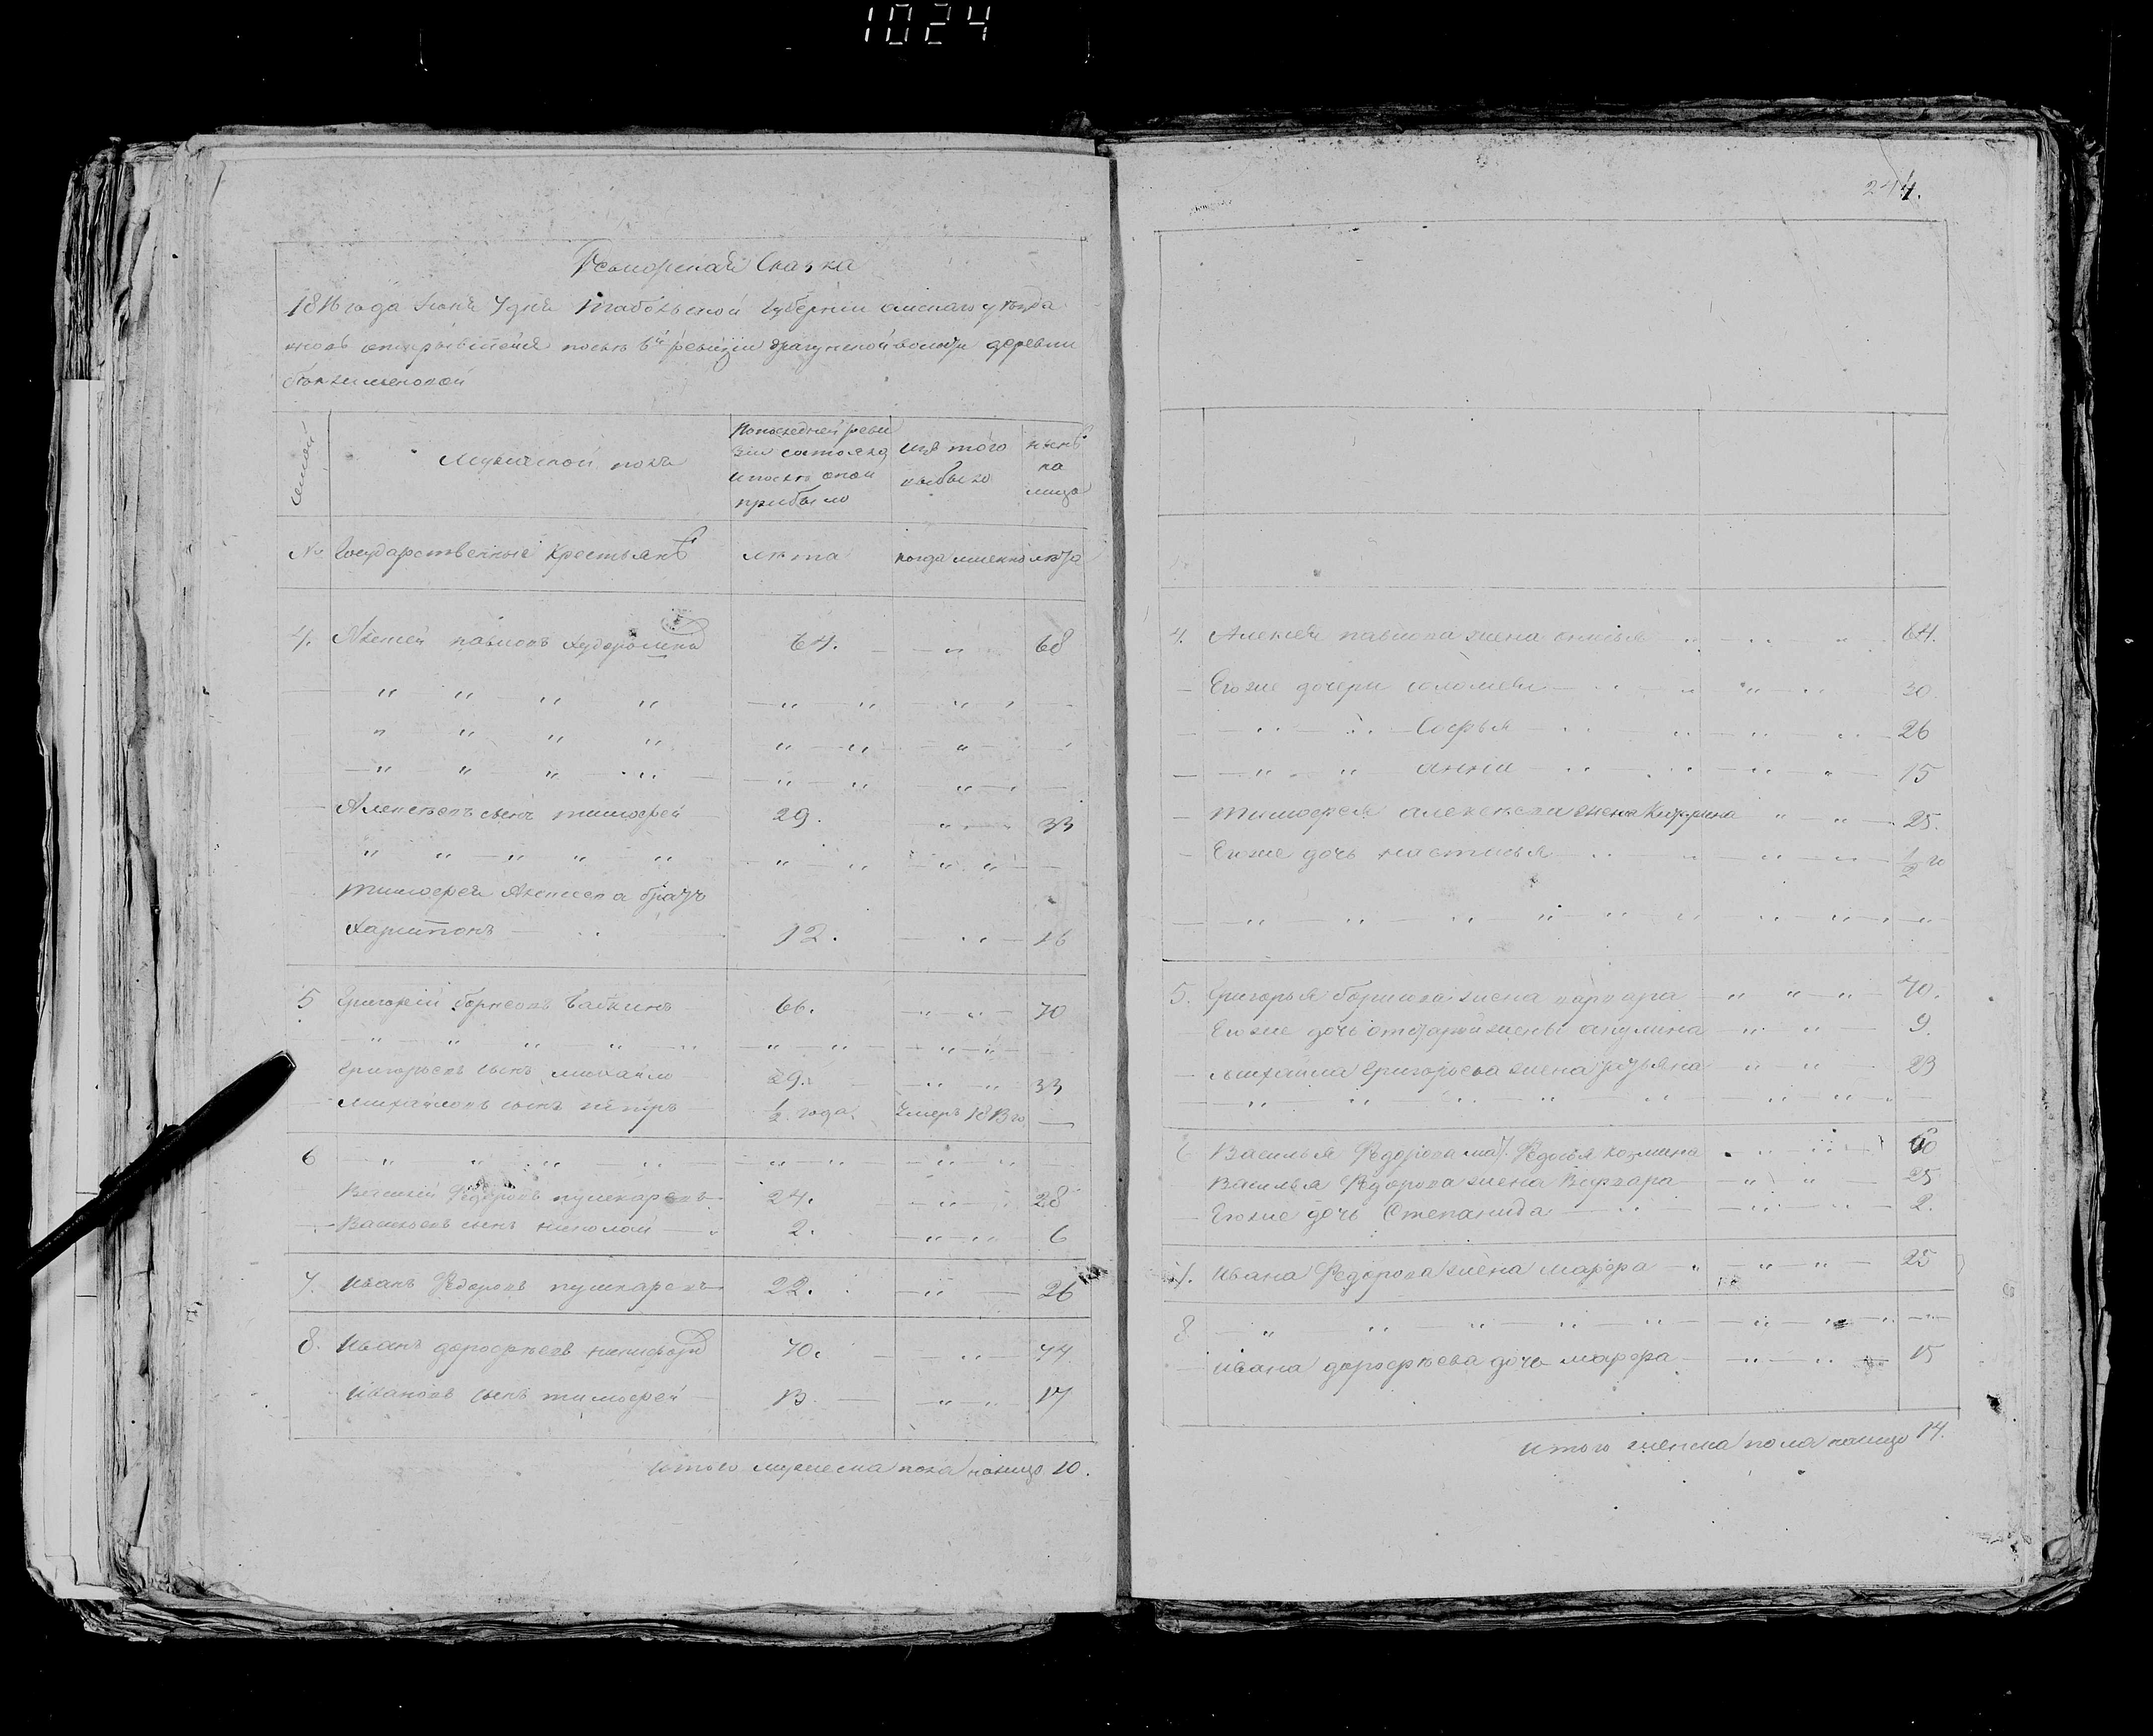 1024
244.
Ревизская Сказка
1816 года Іюня 4 дня Тобольской Губернии омскаго уезда
после 6й ревизіи волости деревни
Семей
Мужеской полъ
По последней реви
зіи состояло
и после оной
прибыло
изъ того
выбыло
ныне
на
лицо
№ Государственные Крестьяне
лета
когда именно
лета
4. Алексей павловъ 64. 68
Алексеевъ сынъ тимофей 29. 33
тимофея Алексеева братъ
Харитонъ 12. 16
5 Григорій борисовъ 66. 70
Григорьевъ сынъ михайло 29. 33
михайловъ сынъ петръ 1/2 года. Умеръ 1813 го
6
Василий Федоровъ пушкаревъ 24. 28
Васильевъ сынъ николай 2. 6
7. Иванъ Федоровъ пушкаревъ 22. 26
8. Иванъ дорофеевъ 70. 74
Ивановъ сынъ тимофей 13. 17
итого мужеска пола налицо 10.
4. Алексея павлова жена 64.
Его же дочери 30
Софья 26
анна 15
тимофея алексеева жена 25.
Его же дочь настасья 1/2 го
5. Григорья борисова жена варвара 70.
Его же дочь жены акулина 9.
михайла Григорьева жена татьяна 23
6 Василья Федорова мать Федосья козмина 60
Василья Федорова жена Варвара 25
Его же дочь Степанида 2.
7. Ивана Федорова жена марфа 25
8
ивана дорофеева дочь марфа 15
итого женска пола налицо 14.